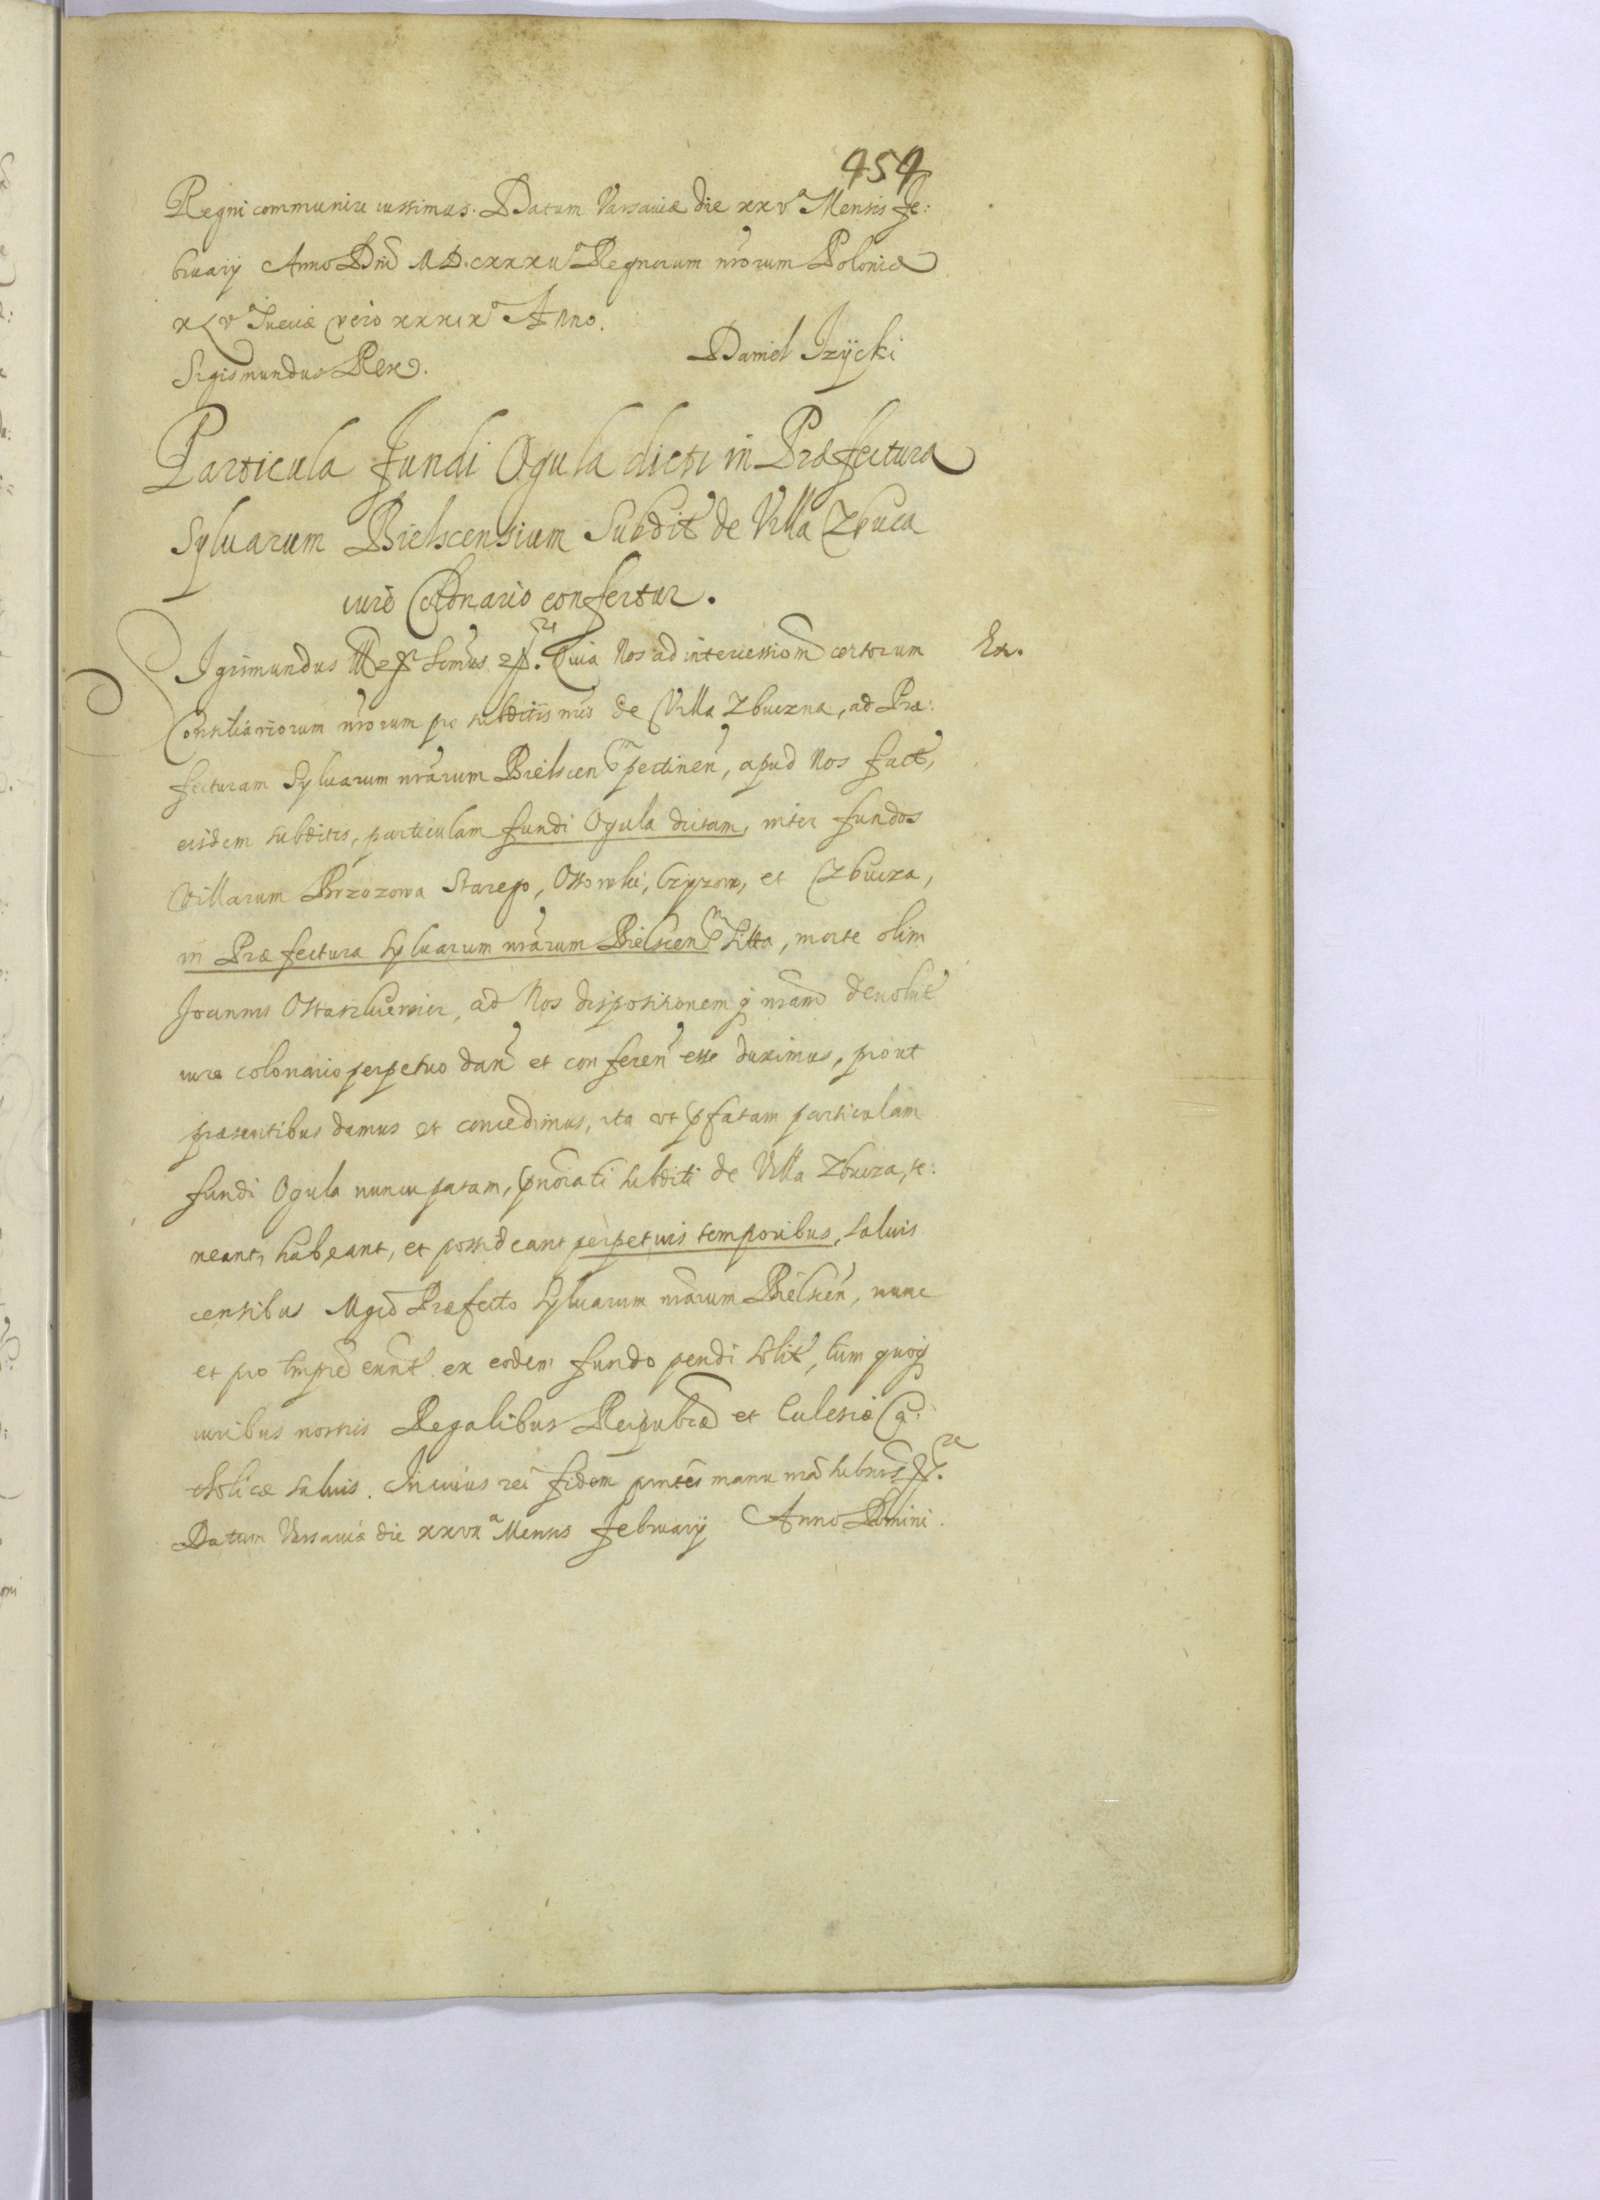 454
Regni communiri iussimus. Datum Varsaviæ die xxvᵃ Mensis Fe:
bruarij Anno Dnĩ M.D.CXXXII Regnorum nrõrum Poloniæ
XLVᵒ Sueciæ vero XXXIXᵒ Anno.
Sigismundus Rex.
Daniel Izÿcki
Particula fundi Ogula dicti in Præfectura
Syluarum Bielscensium Subdit de Villa Zbuca
iure Colonario confertur.
Sigismundus III Quia Nos ad intercessionẽ certorum
Ex.
Consiliariorum nrõrum pro subditis nris de Villa Zbuczna, ad Præ:
fecturam Syluarum nrãrum Bielscen pertinen, apud Nos fact,
eisdem subditis, particulam fundi Ogula dictam, inter fundos
Villarum Brzozowa Starego, Ossowki, Czyzow, et Zbucza,
in Præfectura Syluarum nrãrum Bielscen sitta, morte olim
Joannis ad Nos dispositionem q nram devolut
iure colonario perpetuo dan et conferen esse duximus, prout
præsentibus damus et concedimus, ita ut pfatam particulam
fundi Ogula nuncupatam, pnõiati subditi de Villa Zbucza, te:
neant, habeant, et possideant perpetuis temporibus, saluis
censibus Mgco Præfecto Syluarum nrãrum Bielscen, nunc
et pro tmpre exñt ex eodem fundo pendi solit, tum quoq
iuribus nostris Regalibus Reipublcæ et Ecclesiæ Ca:
tholicæ saluis. In cuius rei fidem pntes manu nrã subscr
Datum Varsaviæ die xxviiᵃ Mensis February Anno Domini.